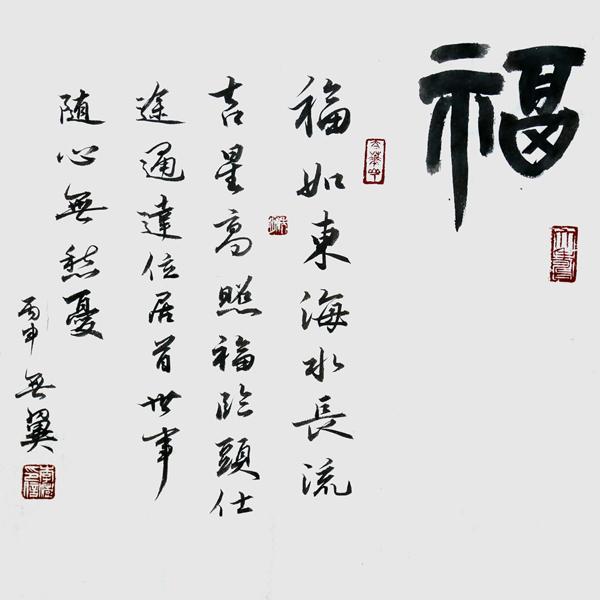 福
福如東海水長流
吉星高照福臨頭仕
途通達位居首世事
随心無愁憂
丙申無翼